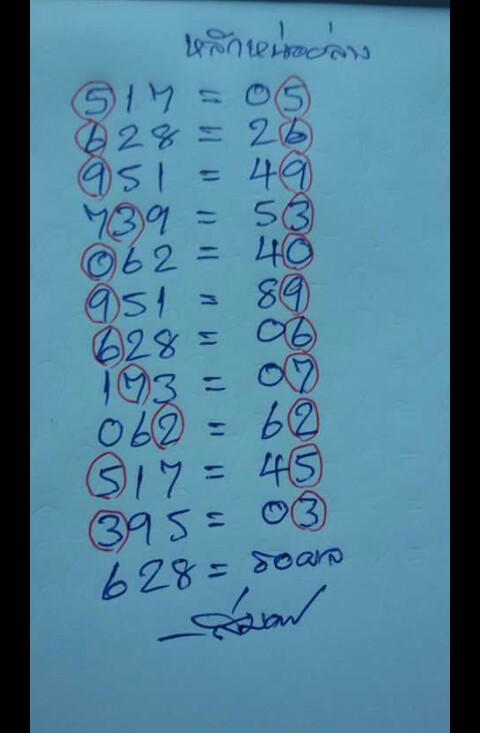 หลักหน่วยล่าง
517 = 05
628 = 26
951 = 49
739 = 53
062 = 40
951 = 89
628 = 06
173 = 07
062 = 62
517 = 45
395 = 03
628 = รอผล